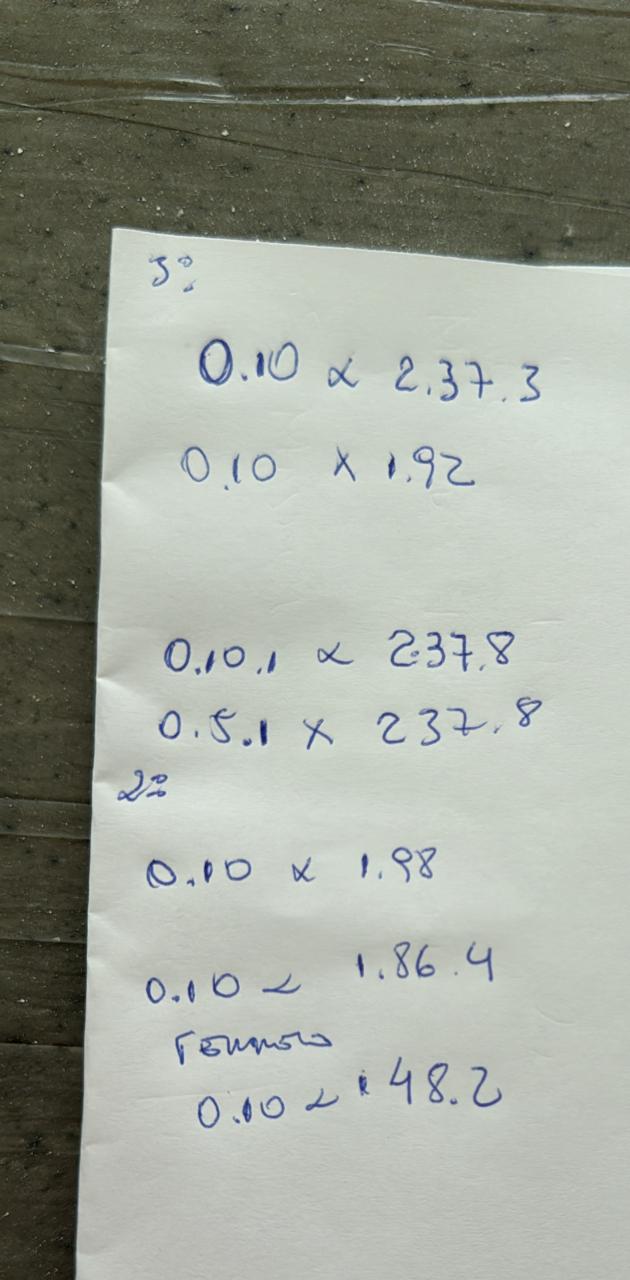 3º
0.10 x 2.37.3
0.10 x 1.92
0.10.1 x 237.8
0.5.1 x 237.8
2º
0.10 x 1.98
0.10 x 1.86.4
0.10 x 148.2